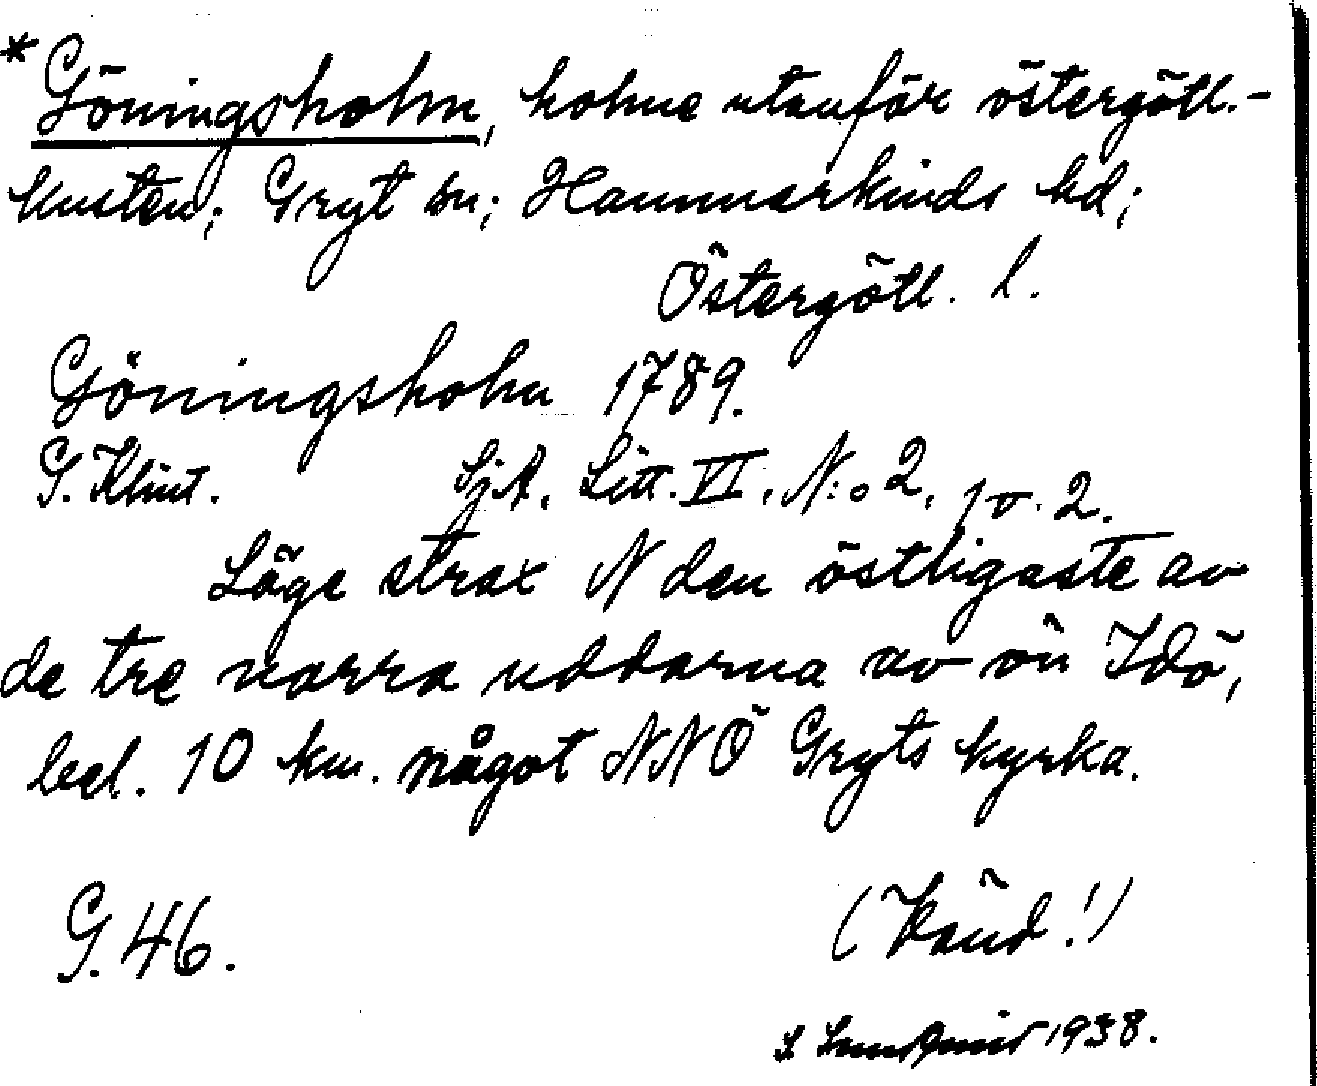 *Göningsholm, holme utanför östergötl.-
kusten; Gryt sn; Hammarkinds hd;
Östergötl. l.
Göningsholm 1789.
G. Klint. SjA. Litt. VI. N:o 2, 1 o. 2.
Läge strax N den östligaste av
de tre norra uddarna av ön Idö,
bel. 10 km. något NNÖ Gryts kyrka.
G. 46. (Känd!)
1938.